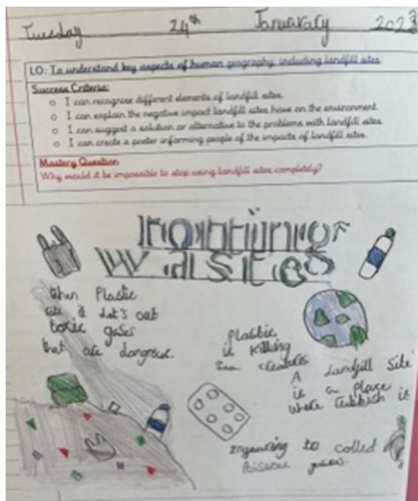 Tuesday 24th Janurary 2023
LO: To understand key aspects of human geography, including landfill sites
Success Criteria:
I can recognise different elements of landfill sites.
I can explain the negative impact landfill sites have on the environment.
I can suggest a solution or alternative to the problems with landfill sites.
I can create a poster informing people of the impacts of landfill sites.
Mastery Question
Why would it be impossible to stop using landfill sites completely?
When Plastic
it Let's out
toxic gases
that are dangrous.
Plastic
is killing
Sea creatures
A Landfill Site
is a place
where rubbish is
to collect
gases.